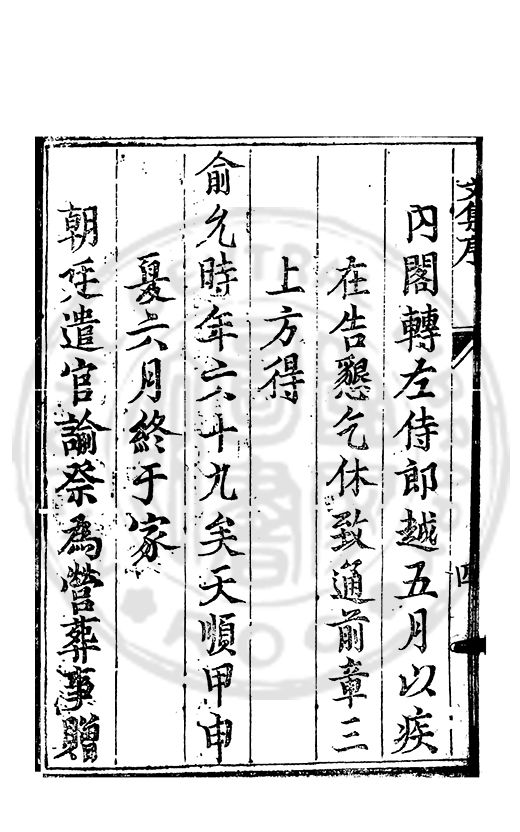 文集序
四
內閣轉左侍郎越五月以疾
在告懇乞休致通前章三
上方得
俞允時年六十九矣天順甲申
夏六月終于家
朝廷遣官諭祭為營葬事贈